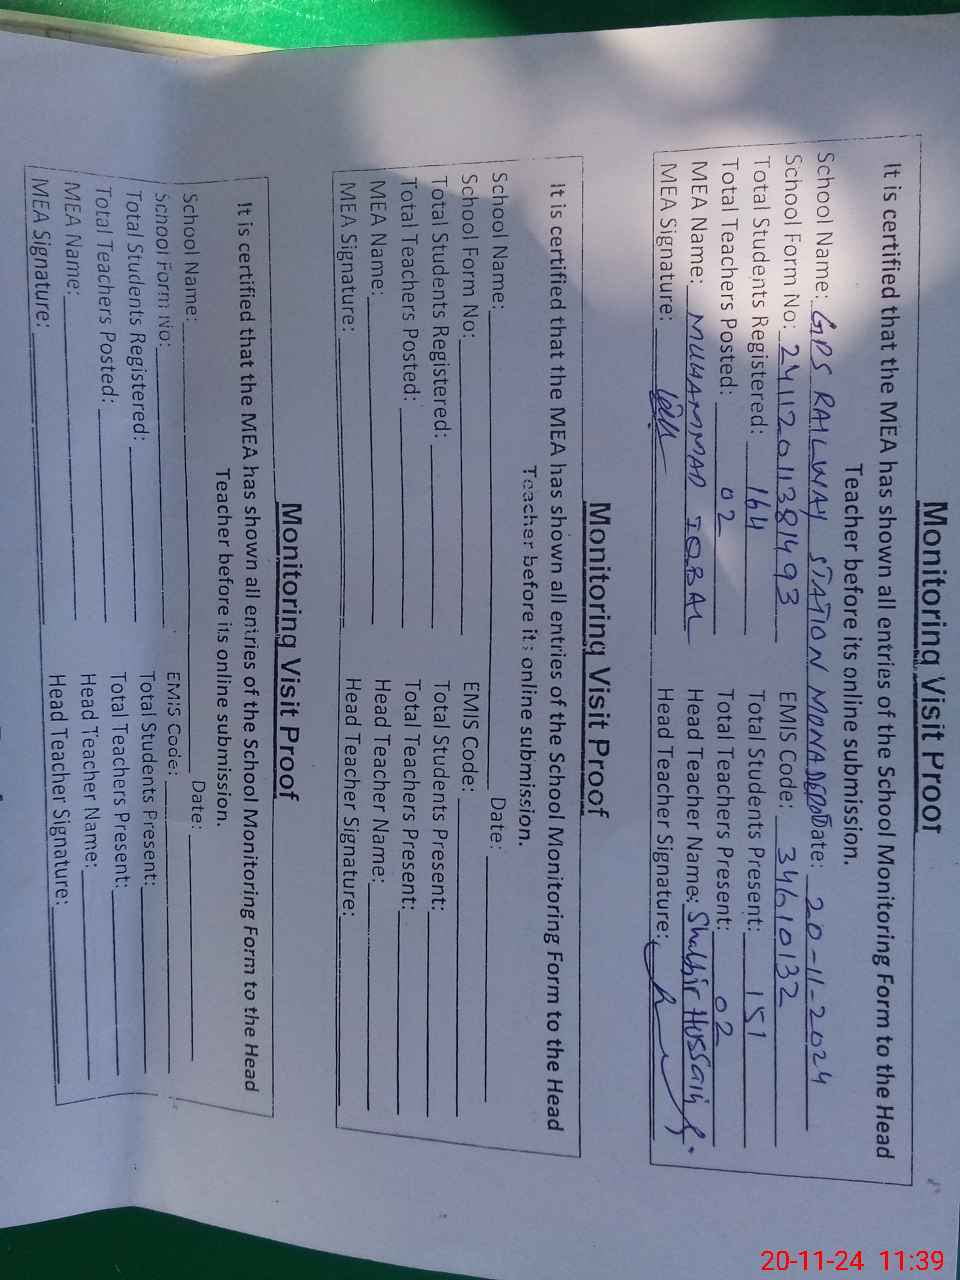 Monitoring Visit Proof
It is certified that the MEA has shown all entries of the School Monitoring Form to the Head
Teacher before its online submission.
School Name: GPS RAILWAY STATION MONA DEPOT Date: 20-11-2024
School Form No: 24112011381493 EMIS Code: 34610132
Total Students Registered: 164 Total Students Present: 151
Total Teachers Posted: 02 Total Teachers Present: 02
MEA Name: MUHAMMAD IQBAL Head Teacher Name: Shabbir Hussain
MEA Signature: Head Teacher Signature:
Monitoring Visit Proof
It is certified that the MEA has shown all entries of the School Monitoring Form to the Head
Teacher before its online submission.
School Name: Date:
School Form No: EMIS Code:
Total Students Registered: Total Students Present:
Total Teachers Posted: Total Teachers Present:
MEA Name: Head Teacher Name:
MEA Signature: Head Teacher Signature:
Monitoring Visit Proof
It is certified that the MEA has shown all entries of the School Monitoring Form to the Head
Teacher before its online submission.
School Name: Date:
School Form No: EMIS Code:
Total Students Registered: Total Students Present:
Total Teachers Posted: Total Teachers Present:
MEA Name: Head Teacher Name:
MEA Signature: Head Teacher Signature:
20-11-24 11:39